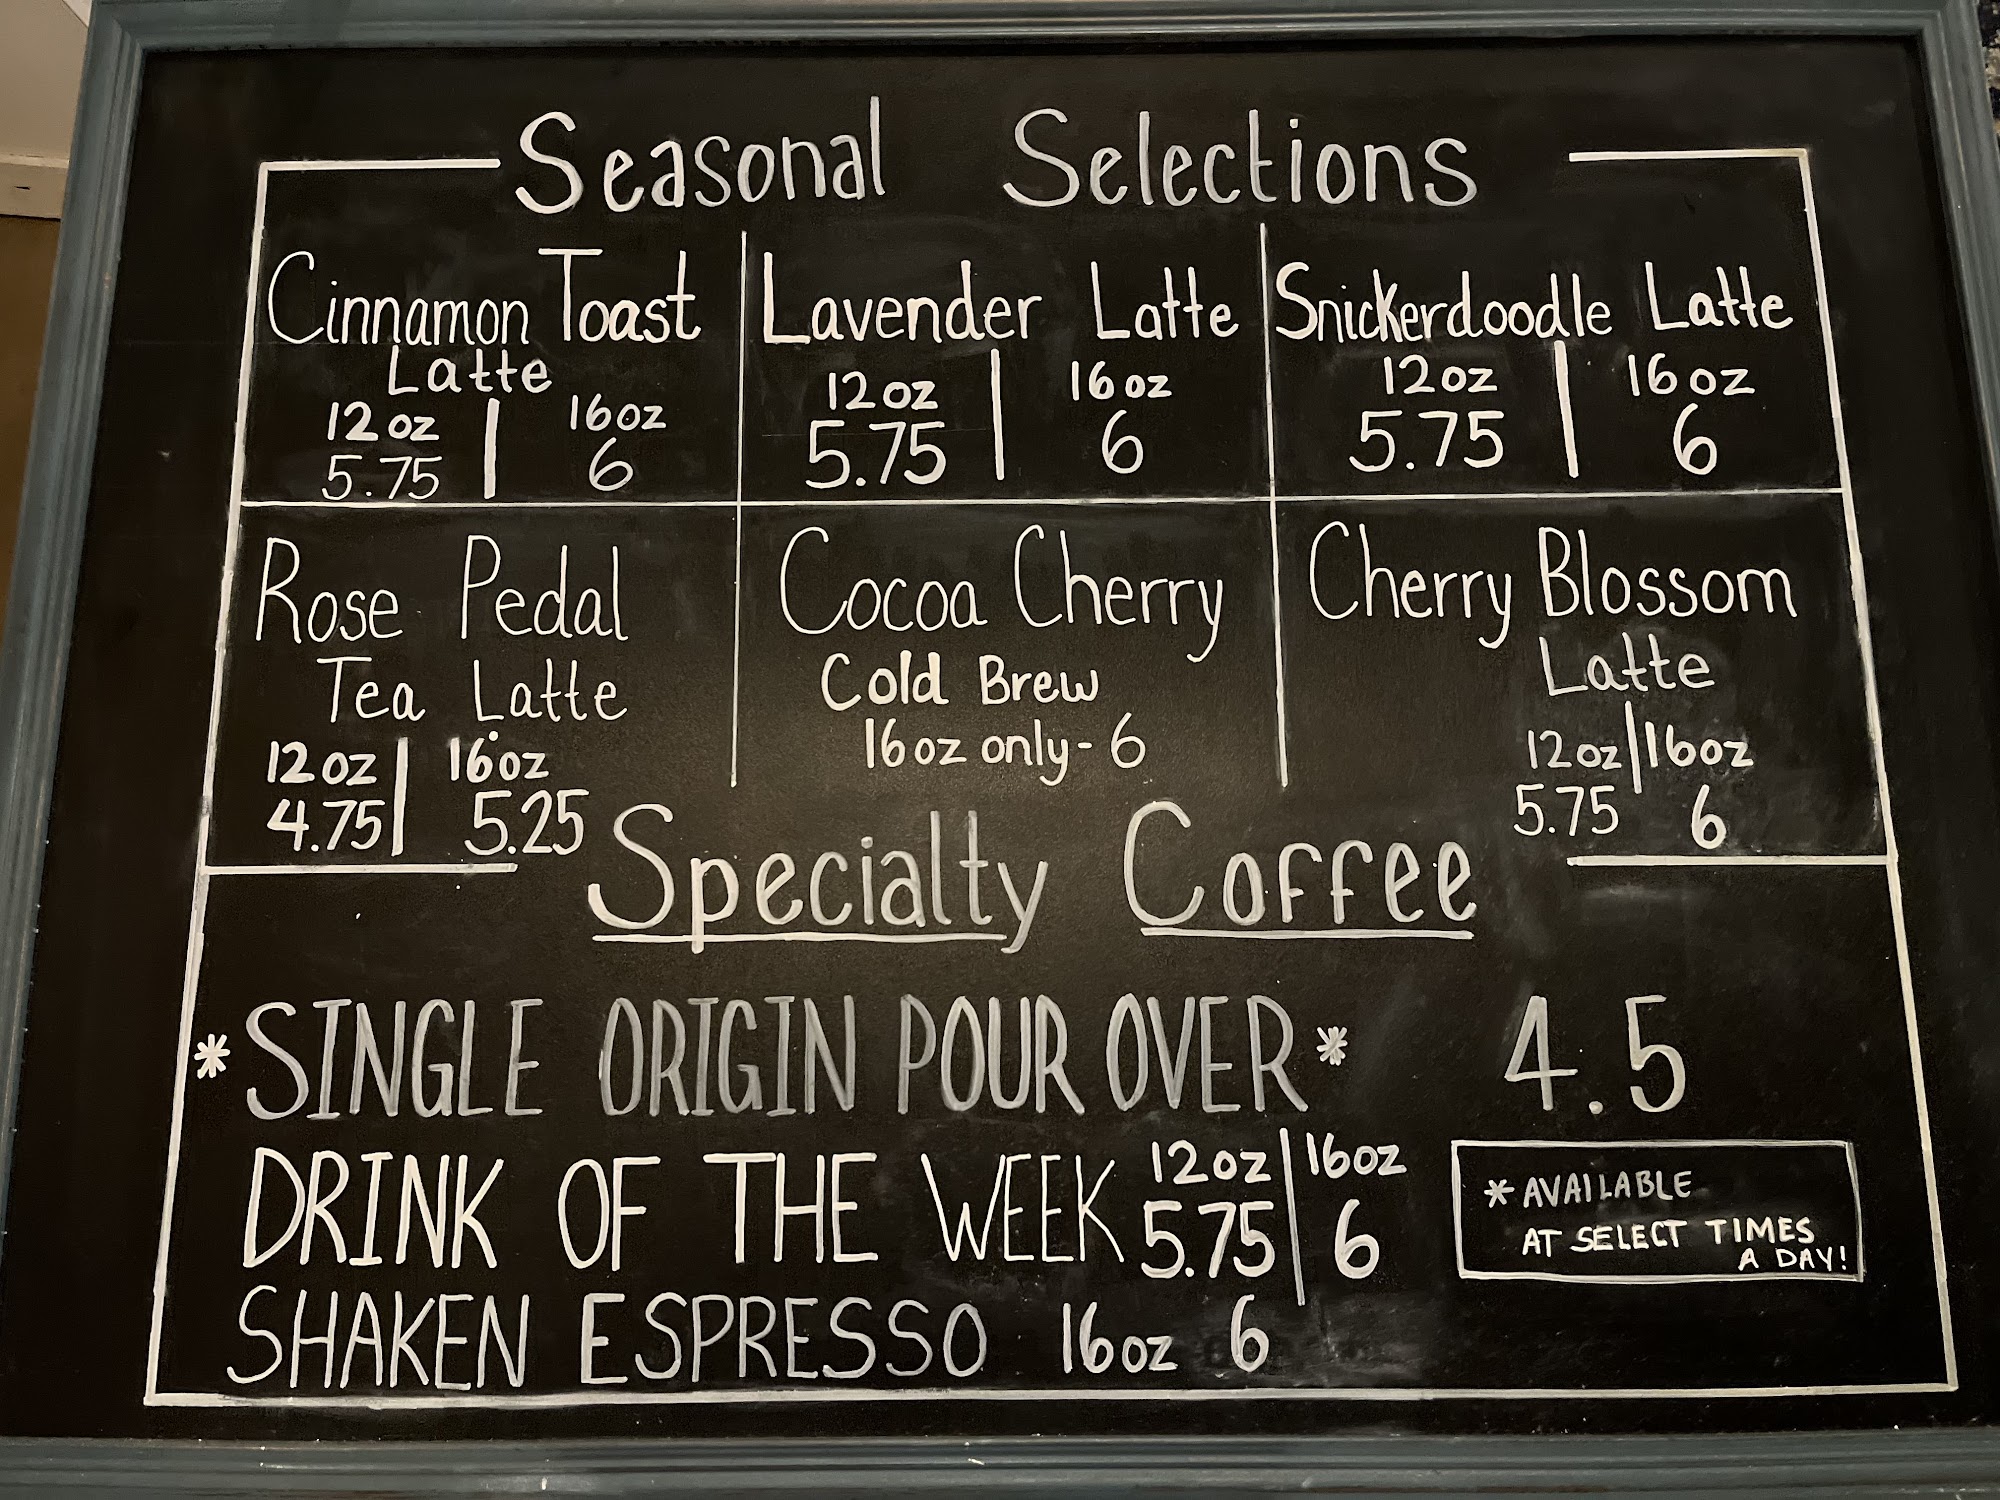 Seasonal Selections
Cinnamon Toast
Latte
12oz | 16oz
5.75 | 6
Lavender Latte
12oz | 16oz
5.75 | 6
Snickerdoodle Latte
12oz | 16oz
5.75 | 6
Rose Pedal
Tea Latte
12oz | 16oz
4.75 | 5.25
Cocoa Cherry
Cold Brew
16oz only - 6
Cherry Blossom
Latte
12oz | 16oz
5.75 | 6
Specialty Coffee
*SINGLE ORIGIN POUR OVER* 4.5
DRINK OF THE WEEK 12oz | 16oz
5.75 | 6
*AVAILABLE
AT SELECT TIMES
A DAY!
SHAKEN ESPRESSO 16oz 6